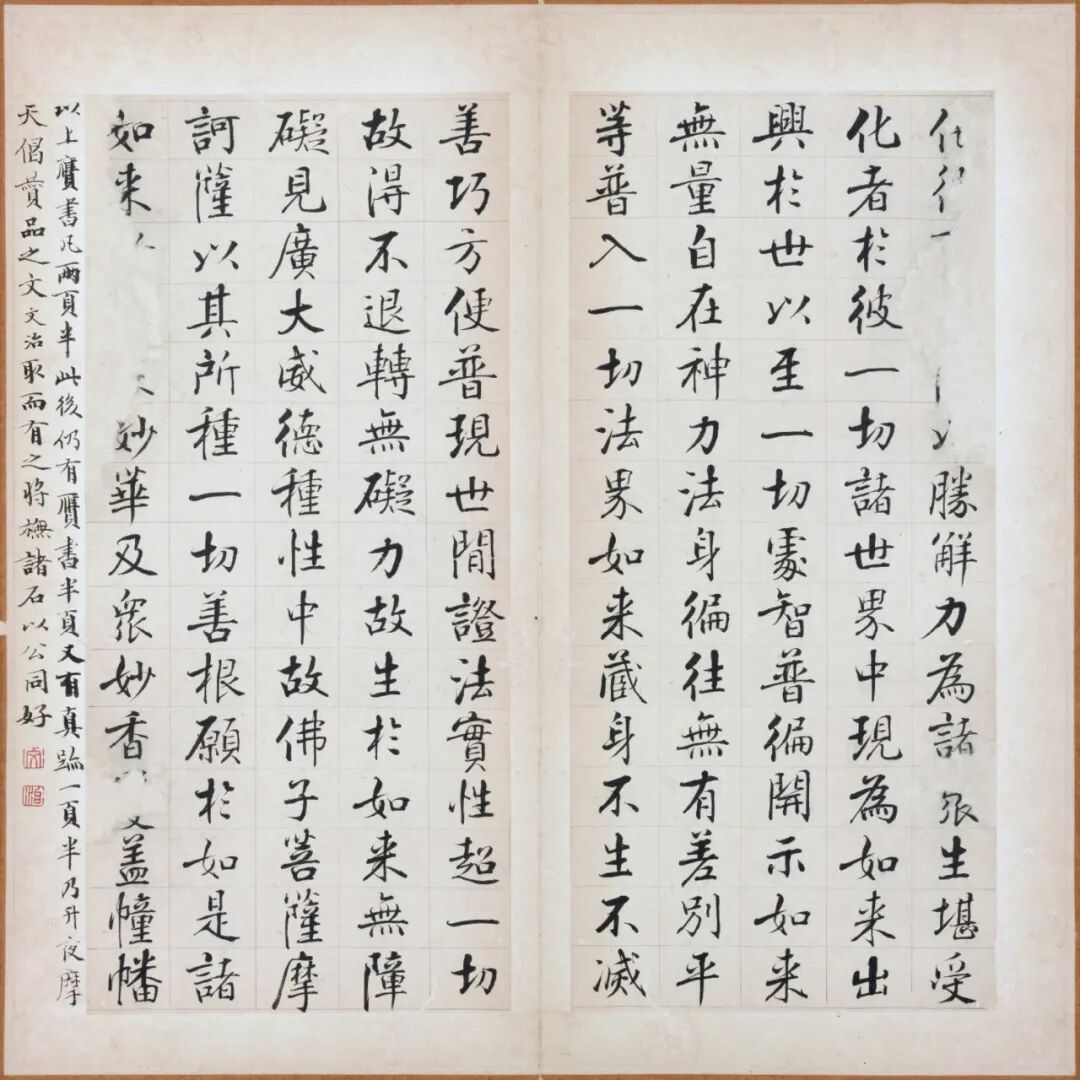 勝解力為諸眾生堪受
化者於彼一切諸世界中現為如来出
興於世以至一切處智普徧開示如来
無量自在神力法身徧往無有差別平
等普入一切法界如来藏身不生不滅
善巧方便普現世間證法實性超一切
故得不退轉無礙力故生於如来無障
礙見廣大威德種性中故佛子菩薩摩
訶薩以其所種一切善根願於如是諸
如来妙華及眾妙香蓋幢幡
以上贗書凡兩頁半此後仍有贗書半頁又有真跡一頁半乃升夜摩
天偈贊品之文文治取而有之將橅諸石以公同好
文
治